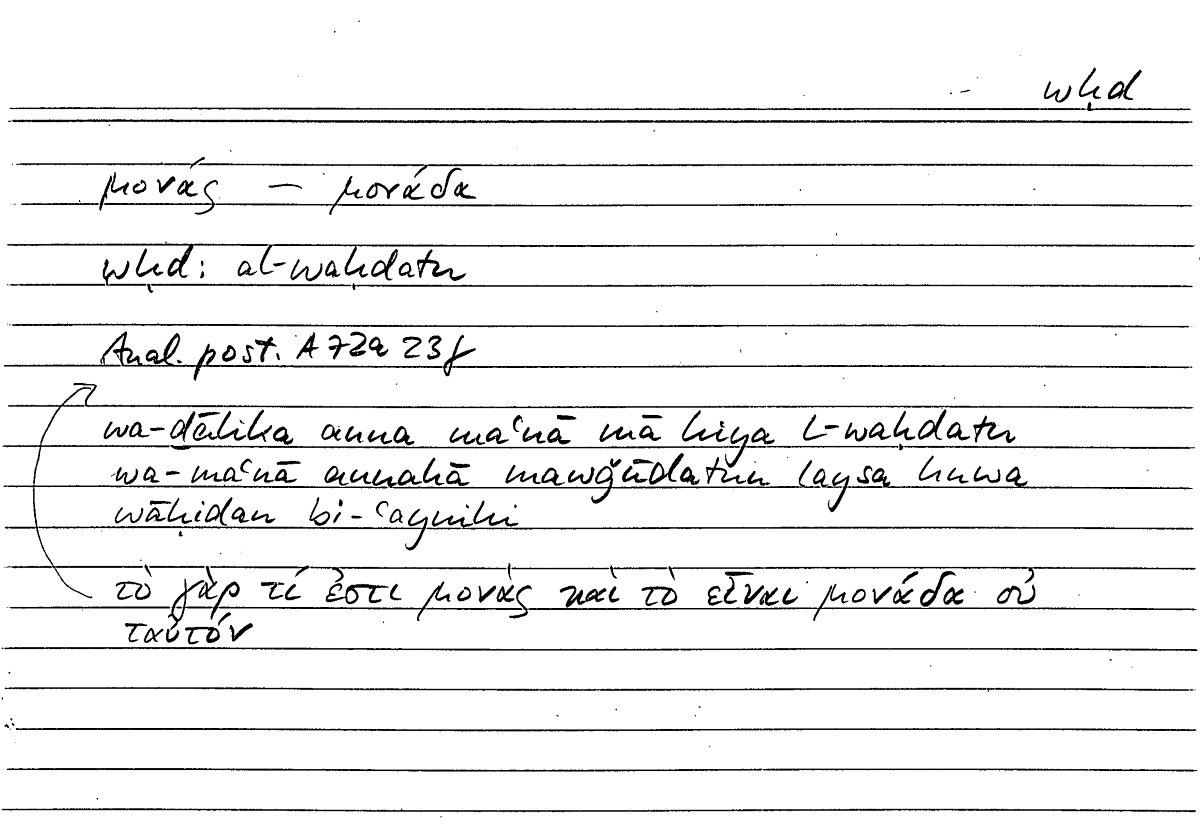 wḥd
μονάς — μονάδα
wḥd: al-waḥdatu
Anal. post. A 72a 23f
wa-ḏālika anna maʿnā mā hiya l-waḥdatu
wa-maʿnā annahā mawǧūdatun laysa huwa
wāḥidan bi-ʿaynihi
τὸ γὰρ τί ἐστι μονὰς καὶ τὸ εἶναι μονάδα οὐ
ταὐτόν